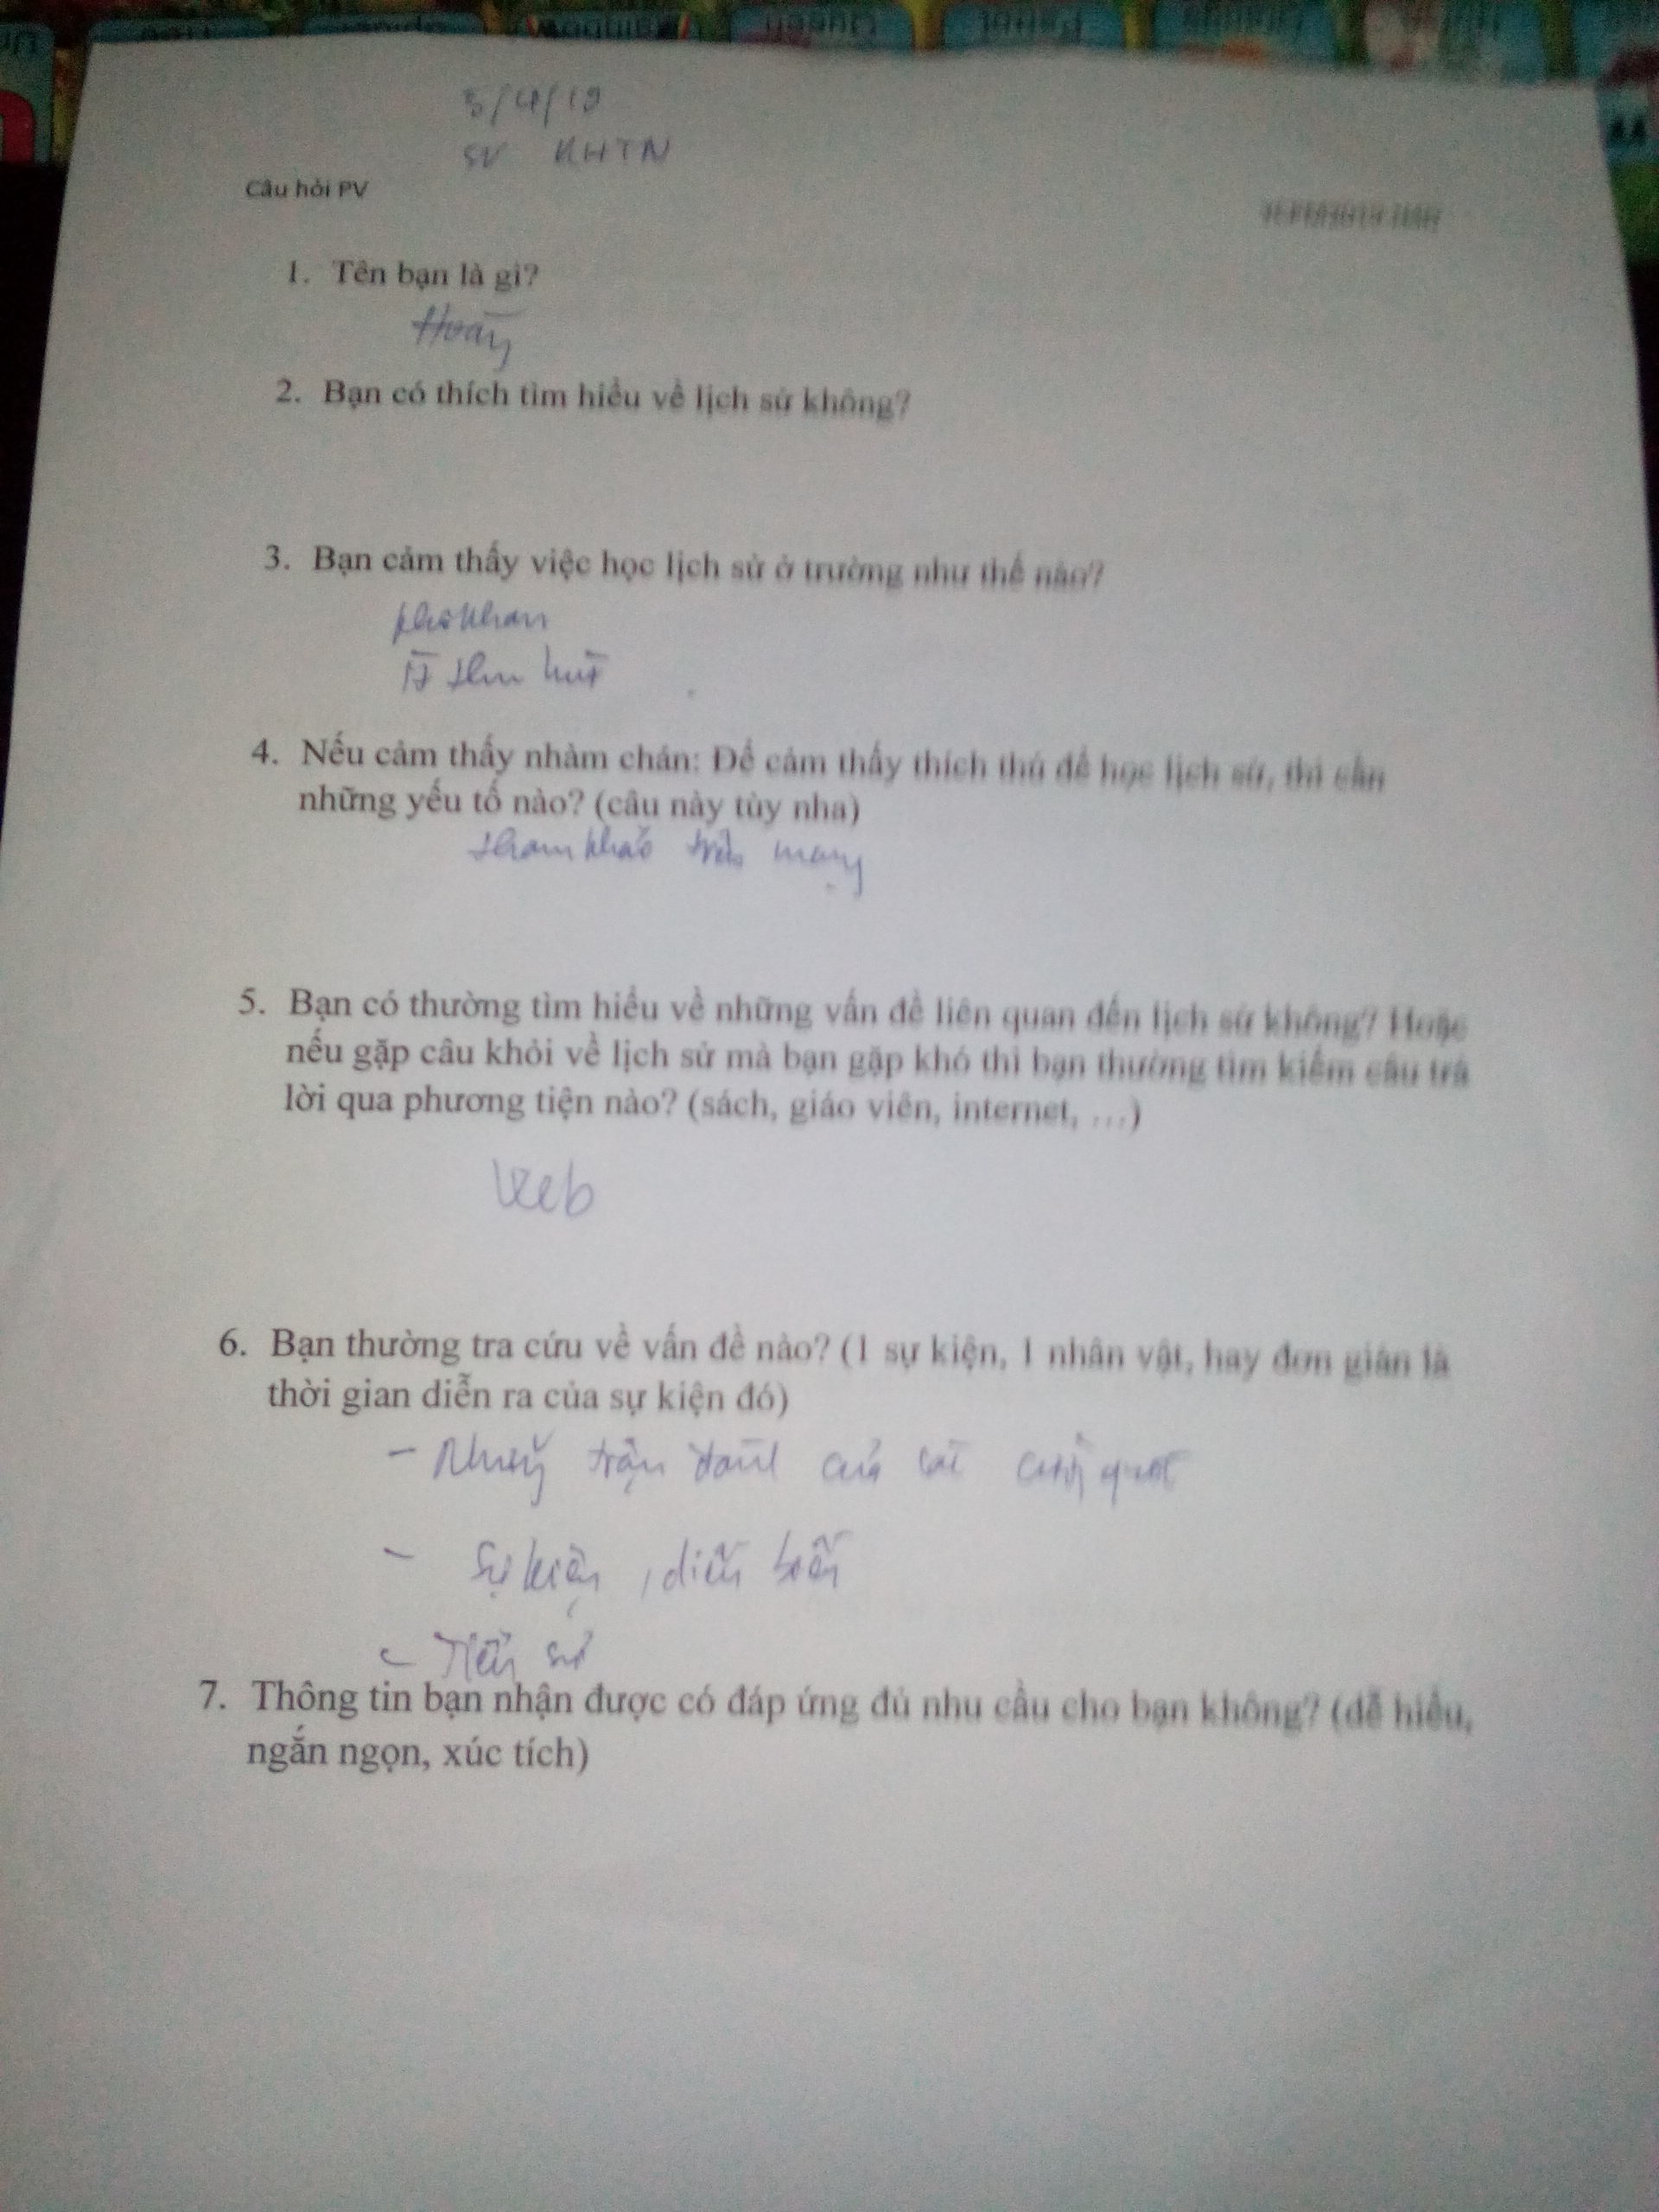 3/4/19
SV KHTN
Câu hỏi PV
1. Tên bạn là gì?
Hoàng
2. Bạn có thích tìm hiểu về lịch sử không?
3. Bạn cảm thấy việc học lịch sử ở trường như thế nào?
khô khan
ít thu hút
4. Nếu cảm thấy nhàm chán: Để cảm thấy thích thú để học lịch sử, thì cần
những yếu tố nào? (câu này tùy nha)
tham khảo trên mạng
5. Bạn có thường tìm hiểu về những vấn đề liên quan đến lịch sử không? Hoặc
nếu gặp câu khỏi về lịch sử mà bạn gặp khó thì bạn thường tìm kiếm câu trả
lời qua phương tiện nào? (sách, giáo viên, internet, ...)
Web
6. Bạn thường tra cứu về vấn đề nào? (1 sự kiện, 1 nhân vật, hay đơn giản là
thời gian diễn ra của sự kiện đó)
- Những trận đánh của các cường quốc
- Sự kiện, diễn biến
- Tiểu sử
7. Thông tin bạn nhận được có đáp ứng đủ nhu cầu cho bạn không? (dễ hiểu,
ngắn ngọn, xúc tích)